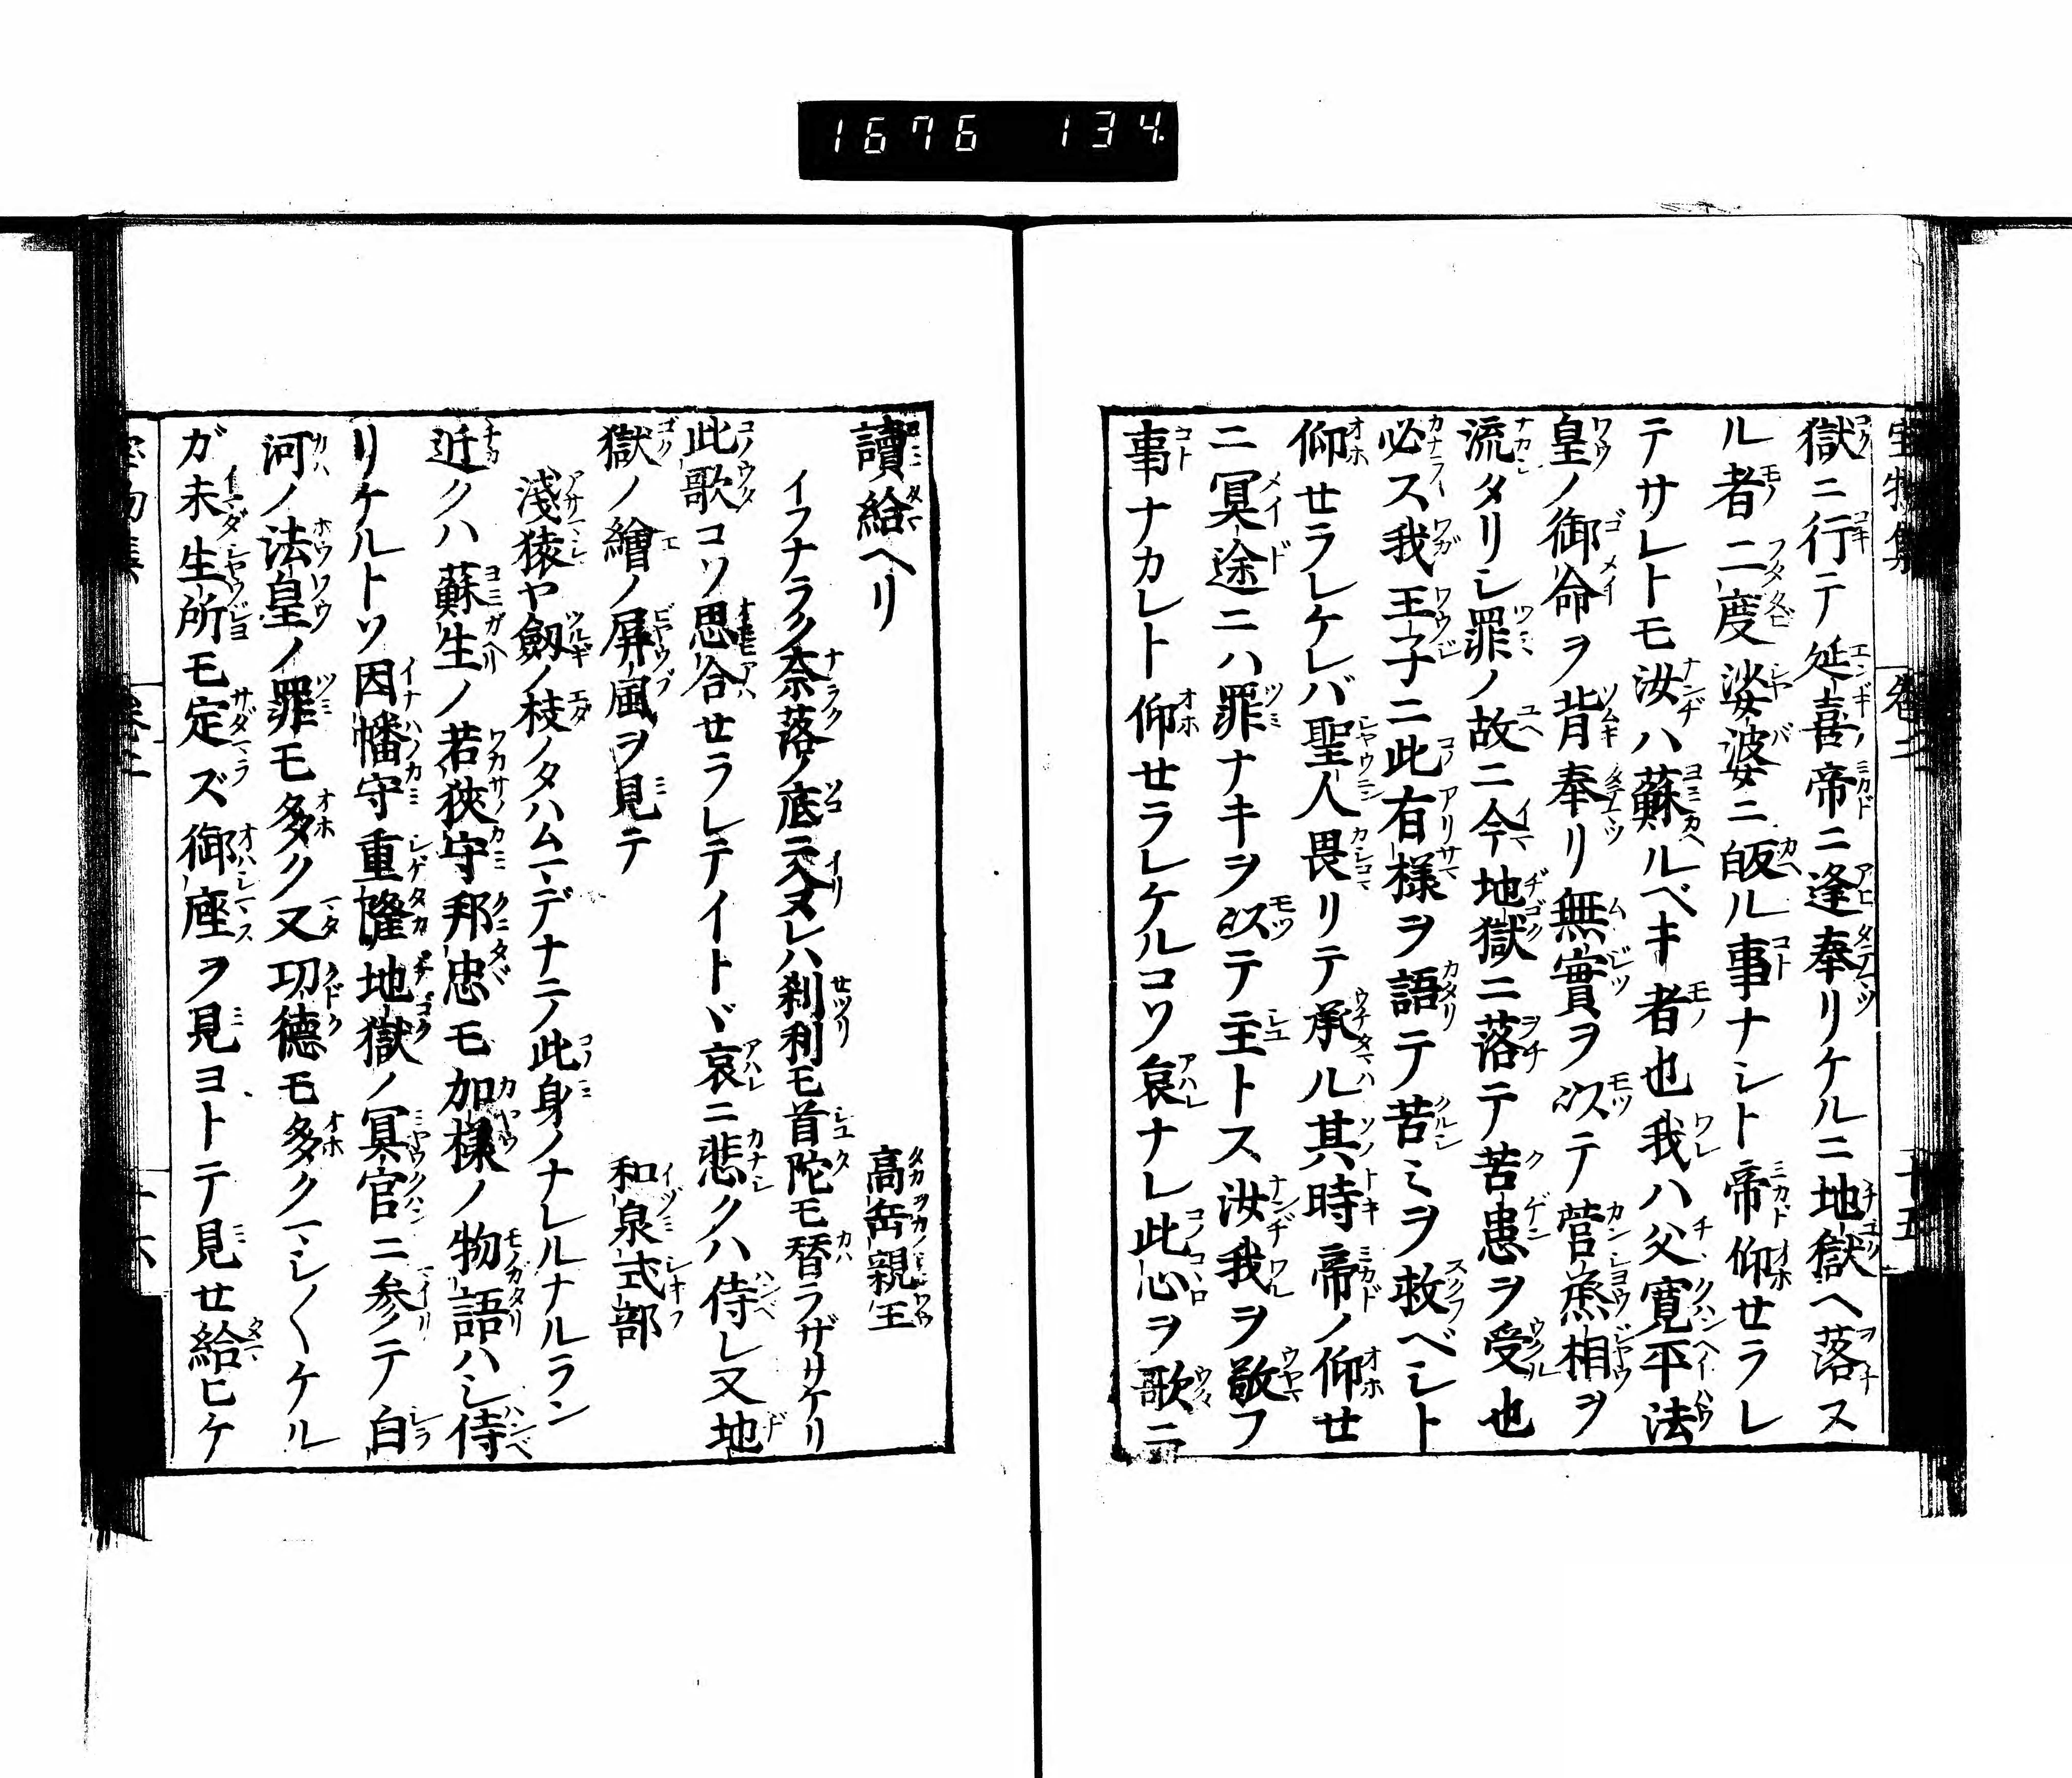 1676 134
獄ニ行テ延喜ノ帝ニ逢奉リケルニ地獄ヘ落ス
ル者二度娑婆ニ皈ル事ナシト帝仰セラレ
テサレトモ汝ハ蘇ルベキ者也我ハ父寛平法
皇ノ御命ヲ背奉リ無實ヲ以テ菅烝相ヲ
流タリシ罪ノ故ニ今地獄ニ落テ苦患ヲ受也
必ス我王子ニ此有様ヲ語テ苦ミヲ救ベシト
仰セラレケレバ聖人畏リテ承ル其時帝ノ仰セ
ニ冥途ニハ罪ナキヲ以テ主トス汝我ヲ敬フ
事ナカレト仰セラレケルコソ哀ナレ此心ヲ歌ニ
讀給ヘリ
高岳親王
イフナラク奈落ノ底ニ入ヌレハ刹利モ首陀モ替ラザリケリ
此歌コソ思合セラレテイトヾ哀ニ悲クハ侍レ又地
獄ノ繪ノ屏風ヲ見テ
和泉式部
淺猿ヤ劔ノ枝ノタハムマデナニノ此身ノナレルナルラン
近クハ蘇生ノ若狹守邦忠モ加様ノ物語ハシ侍
リケルトソ因幡守重隆地獄ノ冥官ニ参テ白
河ノ法皇ノ罪モ多ク又功德モ多クマシ〱ケル
ガ未生所モ定ズ御座ヲ見ヨトテ見せ給ヒケ